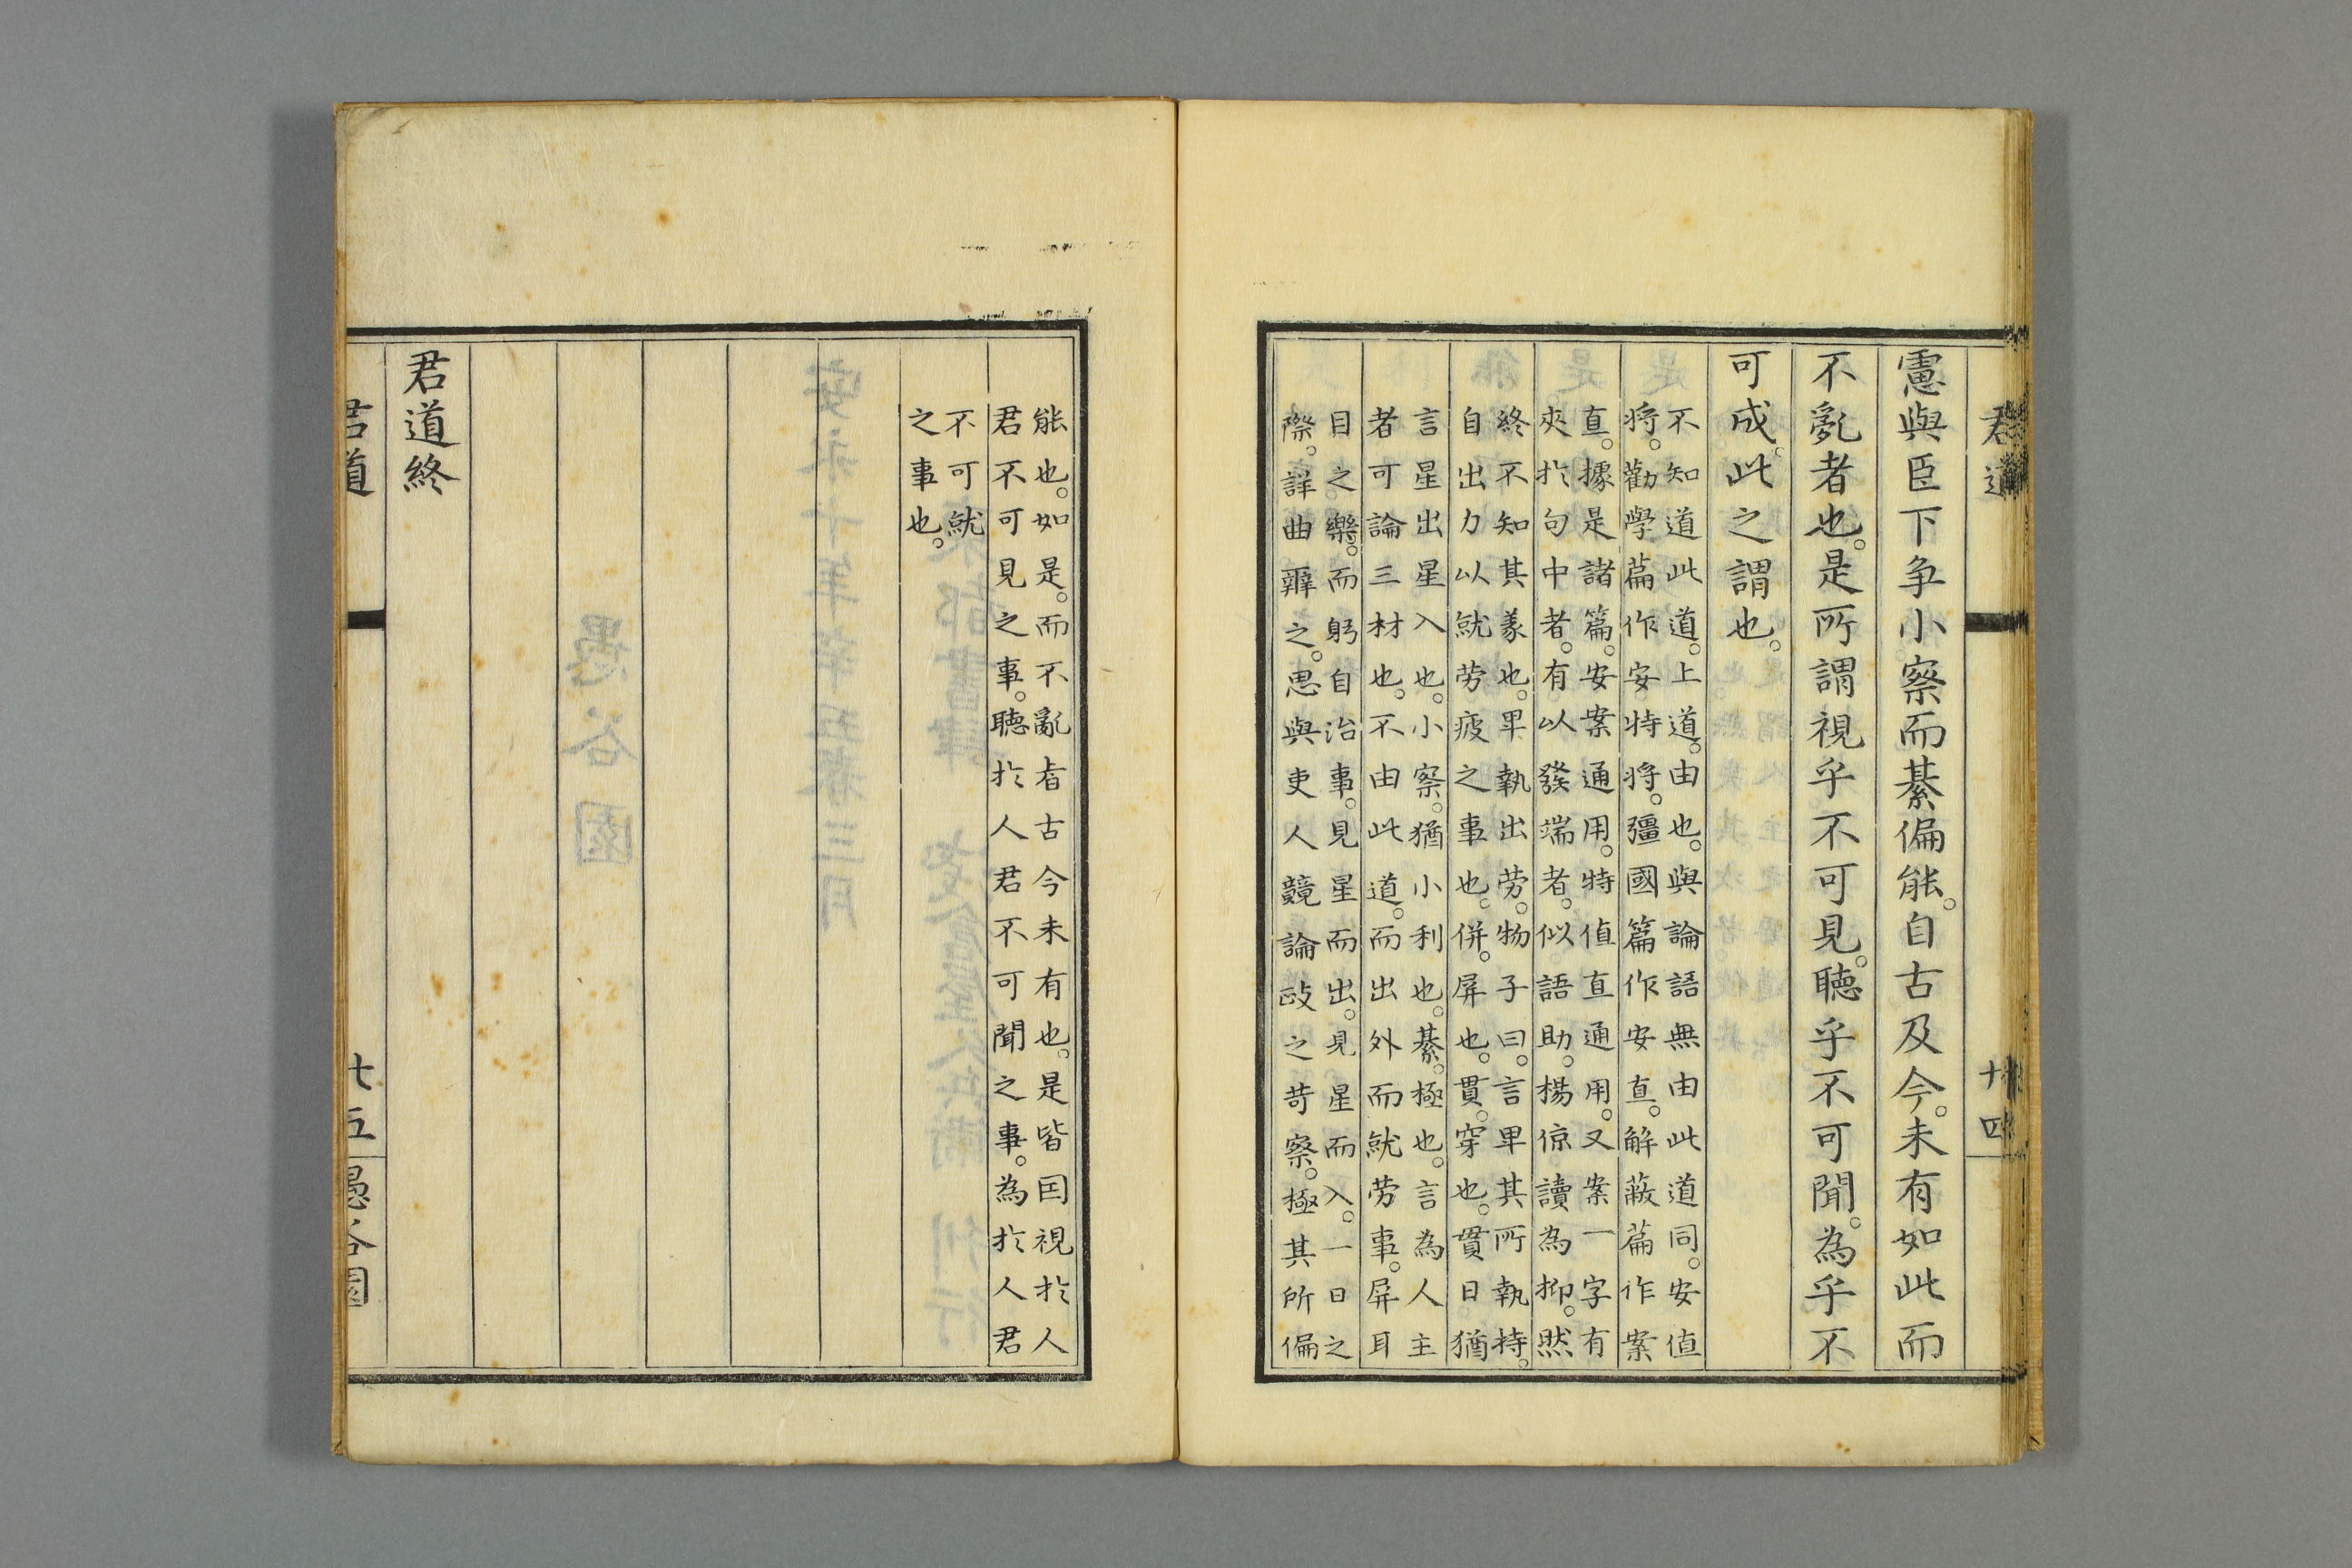 君道
十四
慮與臣下争小察而綦偏能。自古及今。未有如此而
不亂者也。是所謂視乎不可見。聴乎不可聞。為乎不
可成。此之謂也。
不知道此道。上道。由也。與論語無由此道同。安値
将。勸學篇作安特将。彊國篇作安直。解蔽篇作案
直。據是諸篇。安案通用。特値直通用。又案一字有
夾於句中者。有以發端者。似語助。楊倞讀為抑。然
終不知其義也。畢執出劳。物子曰。言畢其所執持。
自出力以就劳疲之事也。併。屏也。貫。穿也。貫日猶
言星出星入也。小察。猶小利也。綦。極也。言為人主
者可論三材也。不由此道。而出外而就劳事。屏耳
目之樂。而躬自治事。見星而出。見星而入。一日之
際。詳曲辨之。思與吏人競論䜴之苛察。極其所偏
能也。如是。而不亂者古今未有也。是皆因視於人
君不可見之事。聴於人君不可聞之事。為於人君
不可就
之事也。
君道終
君道
十五
愚谷園